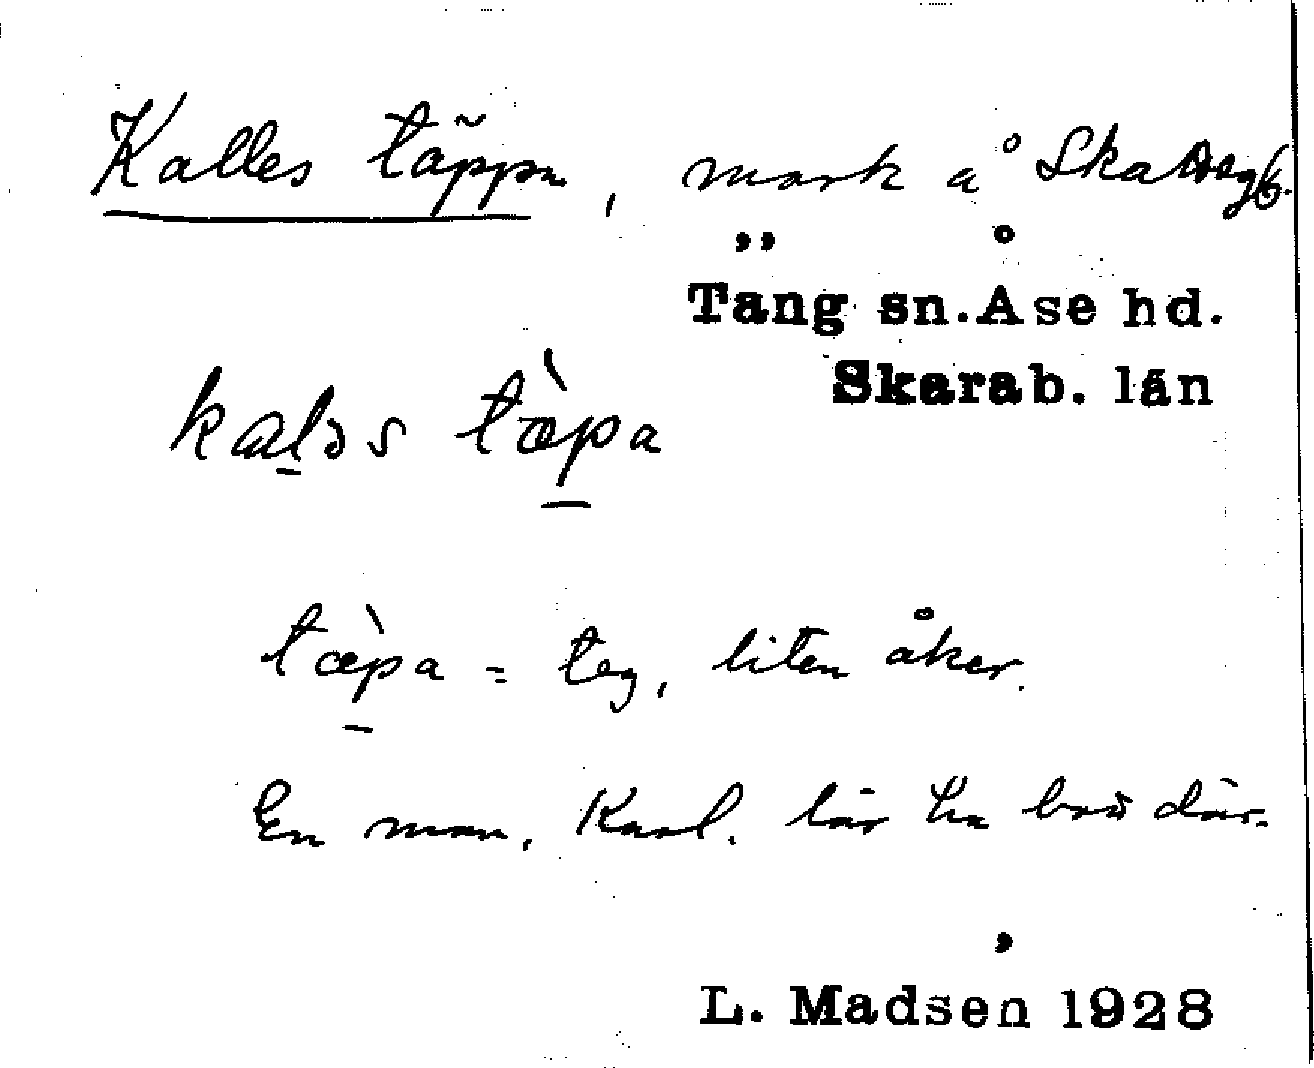 Kalles täppa, mark å Skattegb.
Täng sn. Åse hd.
Skarab. län
kaləs tæ̀pa
tæ̀pa = teg, liten åker.
En man, Karl, lär ha bott där.
L. Madsén 1928